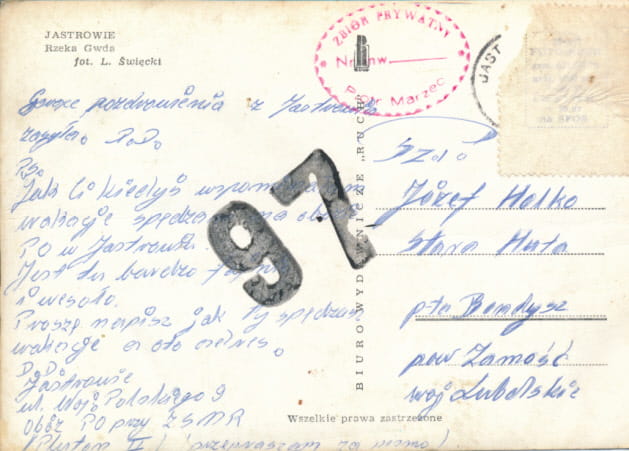 JASTROWIE
Rzeka Gwda
fot. L. Święcki
ZBIÓR PRYWATNY
Nr inw.
Piotr Marzec
JAST
Gorące pozdrowienia z Jastrowia
zasyła DoDo
P.S.
Jak Ci kiedyś wspominałem
wakacje spędzam na obozie
PO w Jastrowiu.
Jest tu bardzo fajnie
i wesoło.
Proszę napisz jak Ty spędzasz
wakacje a oto adres.
DoDo
Jastrowie
ul. Wojs Polskiego 9
obóz PO przy ZSMR
(Pluton II) (przepraszam za pismo)
97
BIURO WYDAWNICZE „RUCH"
Józef Halko
Stara Huta
pta Bondysz
pow Zamość
woj Lubelskie
Wszelkie prawa zastrzeżone